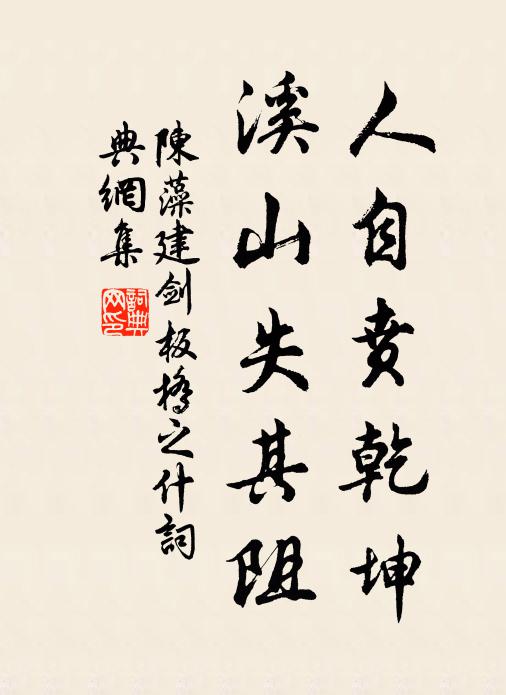 人自賁乾坤
溪山失其阻
陳藻建劍板橋之什詞
典網集
詞典
网印